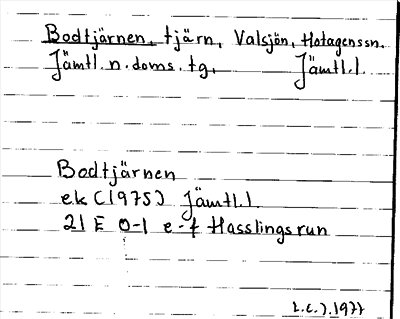 Bodtjärnen, tjärn, Valsjön, Hotagenssn.
Jämtl. n. doms. tg., Jämtl. l.
Bodtjärnen
ek (1975) Jämtl. l.
21 E 0-1 e-f Hasslingsrun
1977